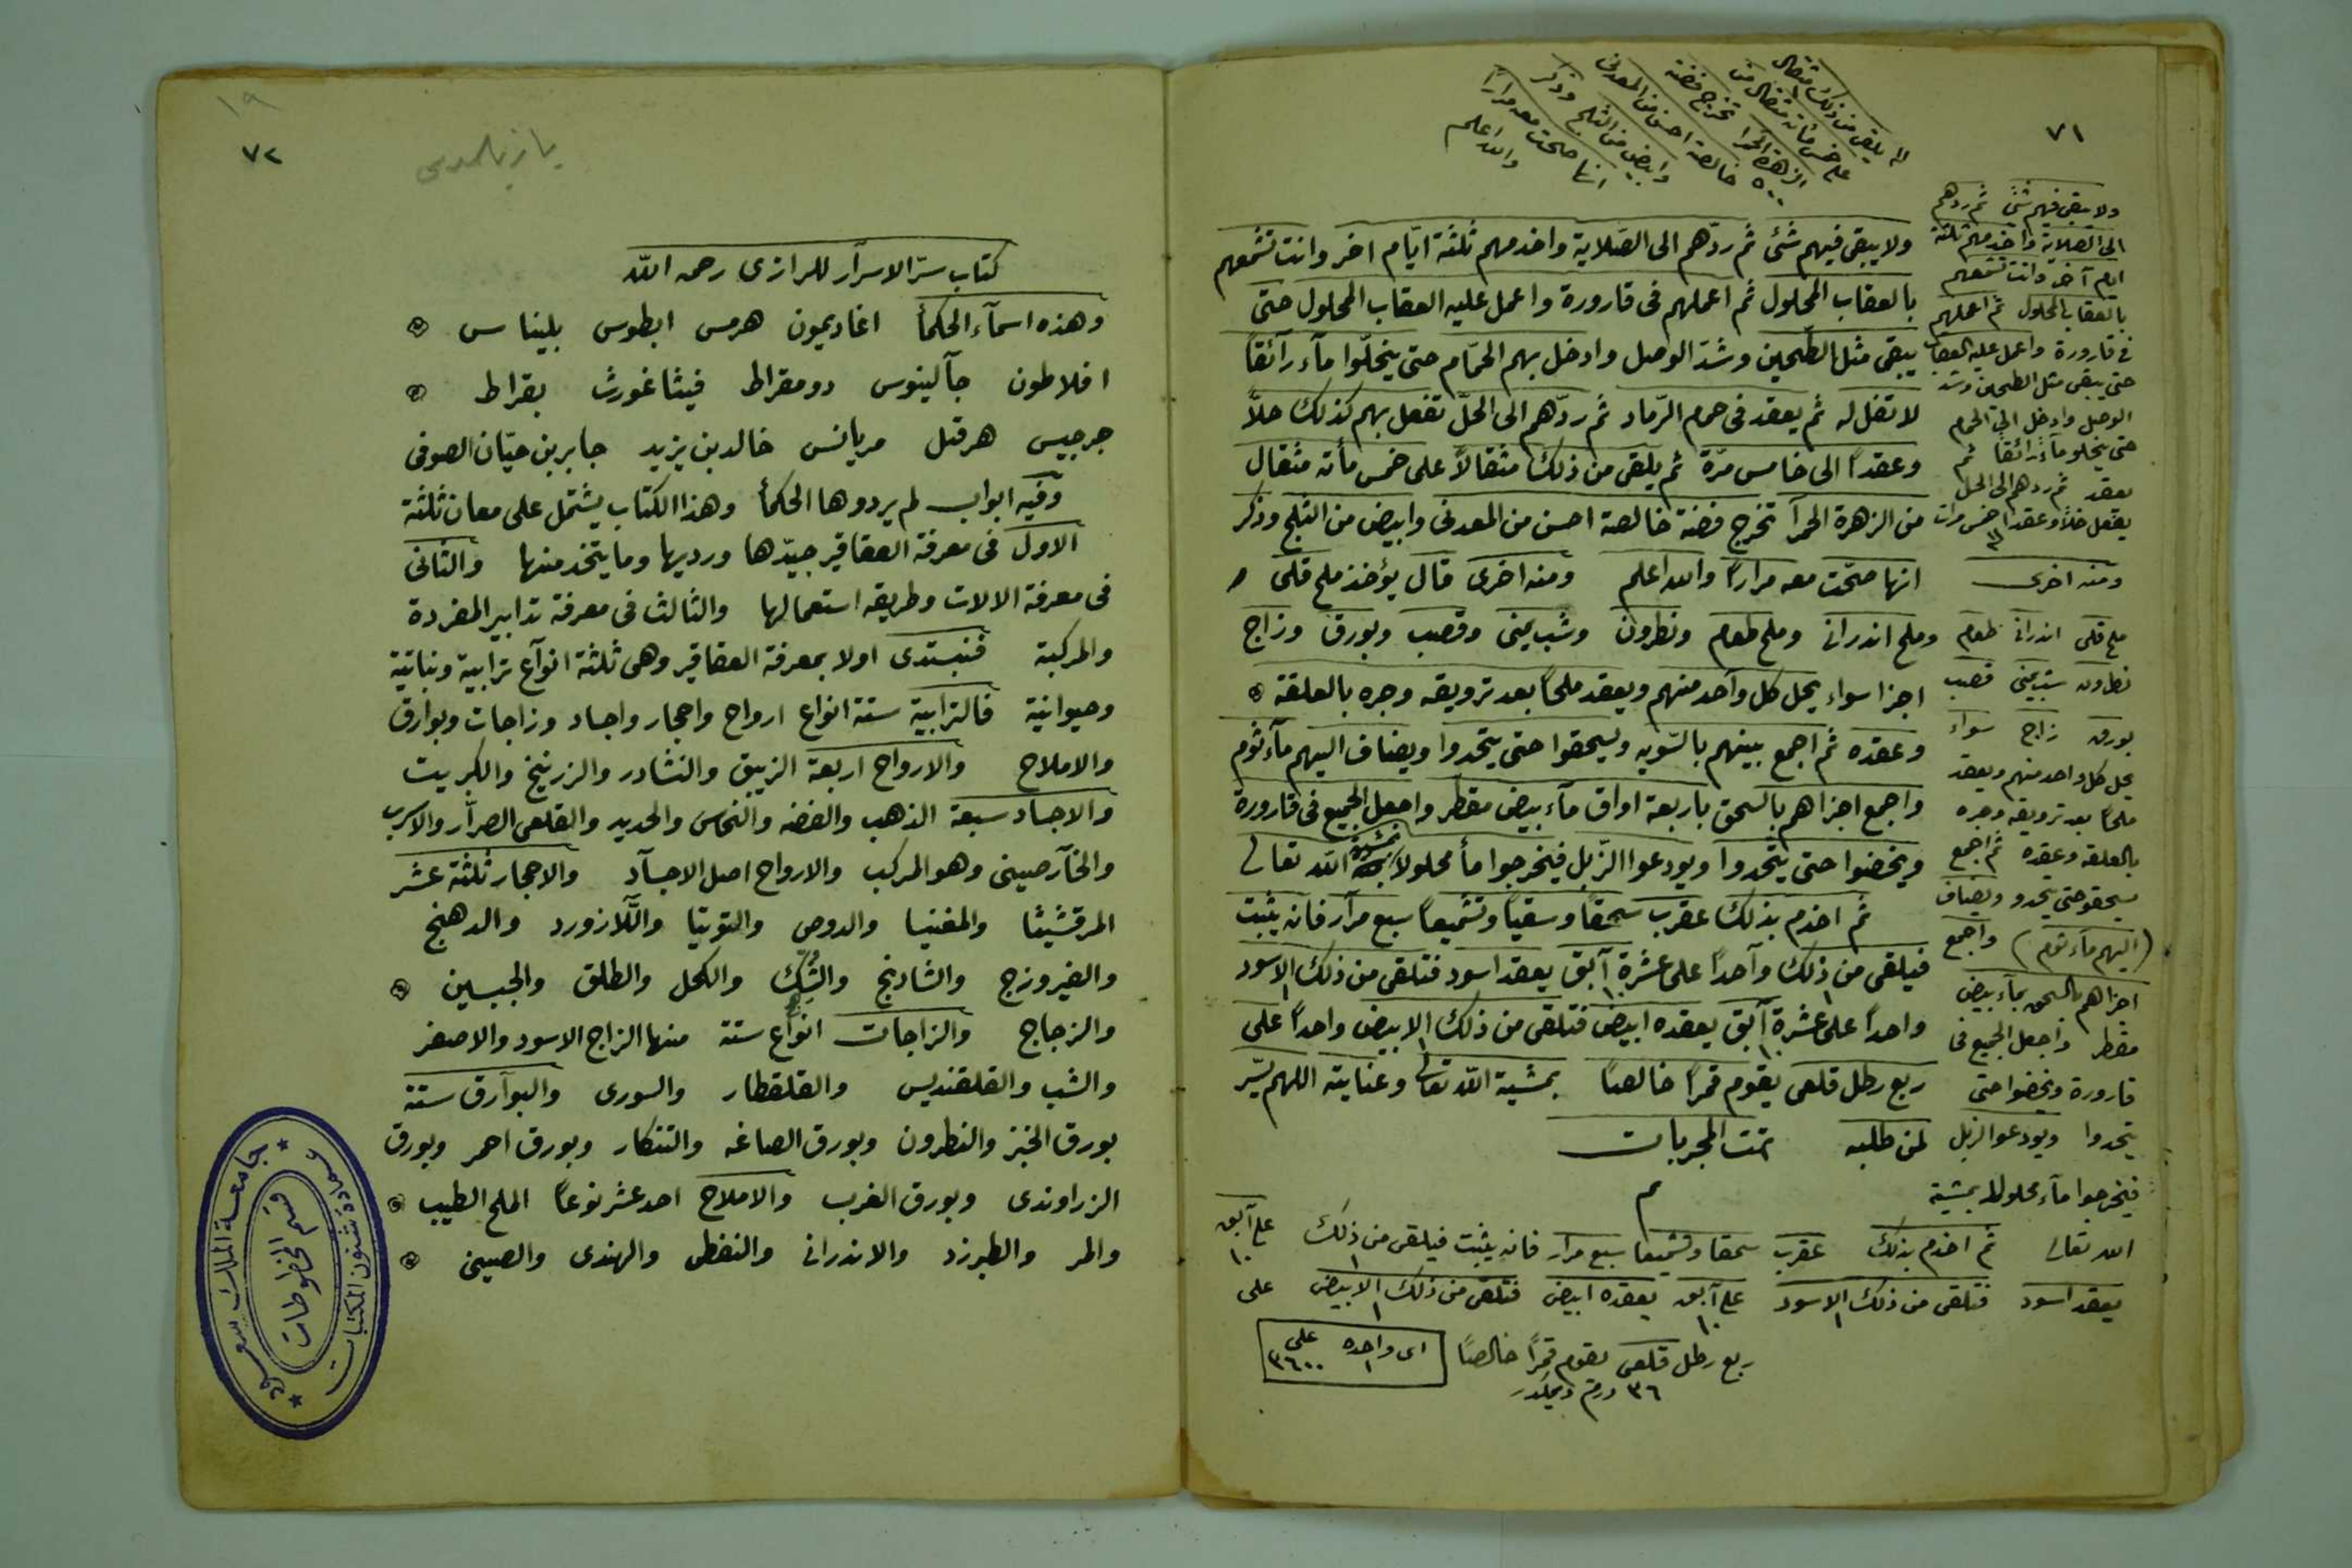 ٧١
ثم يلقى من ذلك مثقال
على خمس مأته مثقال من
الزهرة الحمرا تخرج فضته
٥٠٠ خالصة احسن من المعدنى
وابيض من الثلج وذكر
انها صحت معه مرارًا
والله اعلم
ولا يبقى فيهم شئ ثم ردّهم الى الصّلاية واخدمهم ثلثة ايّام اخر وانت تشمعهم
بالعقاب المحلول ثم اعملهم فى قارورة واعمل عليه العقاب المحلول حتى
يبقى مثل الطّحين وشدّ الوصل وادخل بهم الحمّام حتى ينحلّوا مآء رآئقًا
لا تفل له ثم يعقد فى حمام الرّماد ثم ردّهم الى الحلّ تفعل بهم كذلك حلاًّ
وعقدًا الى خامس مرّة ثم يلقى من ذلك مثقالاً على خمس مأته مثقال
من الزهرة الحمرآ تخرج فضة خالصة احسن من المعدنى وابيض من الثلج وذكر
انها صحّت معه مرارًا والله اعلم ومنه اخرى قال يؤخذ ملح قلى
وملح اندرانى وملح طعام ونطرون وشب يمنى وقصب وبورق وزاج
اجزا سواء يحل كل وآحد منهم ويعقد ملحًا بعد ترويقه وجره بالعلقة
وعقده ثم اجمع بينهم بالسّويه ويسحقوا حتى يتحدوا ويضاف اليهم مآء ثوم
واجمع اجزاهم بالسحق باربعة اواق مآء بيض مقطّر واجعل الجميع فى قارورة
ويخضوا حتى يتّحدوا ويودعوا الزّبل فيخرجوا مأ محلولاً بمشية الله تعالى
ثم اخدم بذلك عقرب سحقًا وسقيًا وتشميعًا سبع مرآر فانه يثبت
فيلقى من ذلك وآحدًا على عشرة آبق يعقد اسود فتلقى من ذلك الاسود
واحدًا على عشرة آبق يعقده ابيض فتلقى من ذلك الابيض واحدًا على
ربع رطل قلعى يقوم قمرًا خالصًا بمشية الله تعالى وعنايته اللهم يسّر
لمن طلبه تمت المجربات
م
ولا يبقى فيهم شئ ثم ردهم
الى الصلاية واخدمهم ثلثة
ايام آخر وانت تشمعهم
بالعقاب المحلول ثم اعملهم
فى قارورة واعمل عليه العقاب
حتى يبقى مثل الطحين وشد
الوصل وادخل الى الحمام
حتى ينحلو مآءً رائقا ثم
يعقد ثم ردهم الى الحل
يفعل حلاً وعقدًا خمس مرات
ومنه اخرى
ملح قلى اندرانى طعام
نطرون شب يمنى قصب
بورق زاج سواء
يحل كل واحد منهم ويعقد
ملحًا بعد ترويقه وجره
بالعلقه وعقده ثم اجمع
يسحقو حتى يتحدو ويضاف
(اليهم مآء ثوم) واجمع
اجزاهم بالسحق بمآء بيض
مقطر واجعل الجميع فى
قارورة ويخضوا حتى
يتحدوا ويودعوا الزبل
فيخرجوا مآء محلولا بمشية
الله تعالى ثم اخدم بذلك عقرب سحقا وتشميعا سبع مرار فانه يثبت فيلقى من ذلك ١ على آبق ١٠
يعقد اسود فتلقى من ذلك الاسود ١ على آبق ١٠ يعقده ابيض فتلقى من ذلك الابيض ١ على
ربع رطل قلعى يقوم قمرًا خالصًا اى واحده ١ على ٣٦٠٠
٣٦ درهم
١٩
٧٢
كتاب سرّ الاسرآر للرازى رحمه اللّه
وهذه اسمآء الحكمأ اغاديمون هرمس ابطوس بليناس
افلاطون جآلينوس دومقراط فيثاغورث بقراط
جرجيس هرقل مريانس خالد بن يزيد جابر بن حيّان الصوفى
وفيه ابواب لم يردوها الحكمأ وهذا الكتاب يشتمل على معان ثلثة
الاول فى معرفة العقاقير جيّدها ورديها وما يتخذ منها والثانى
فى معرفة الالات وطريقه استعمالها والثالث فى معرفة تدابير المفردة
والمركبة فنبتدى اولا بمعرفة العقاقير وهى ثلثة انوآع ترابية ونباتية
وحيوانية فالترابية ستة انواع ارواح واحجار واجساد وزاجات وبوارق
والاملاح والارواح اربعة الزيبق والنشادر والزرنيخ والكبريت
والاجساد سبعة الذهب والفضه والنحاس والحديد والقلعى الصرّآر والاسرب
والخآرصينى وهو المركب والارواح اصل الاجسآد والاحجار ثلثة عشر
المرقشيثا والمغنيسا والدوص والتوتيا واللّازورد والدهنج
والفيروزج والشادنج والشّك والكحل والطلق والجبسين
والزجاج والزاجات انوآع ستة منها الزاج الاسود والاصفر
والشب والقلقنديس والقلقطار والسورى والبوآرق ستة
بورق الخبز والنطرون وبورق الصاغه والتنكار وبورق احمر وبورق
الزراوندى وبورق الغرب والاملاح احد عشر نوعًا الملح الطيب
والمر والطبرزد والاندرانى والنفطى والهندى والصينى
جامعة الملك سعود
قسم المخطوطات
عمادة شئون المكتبات